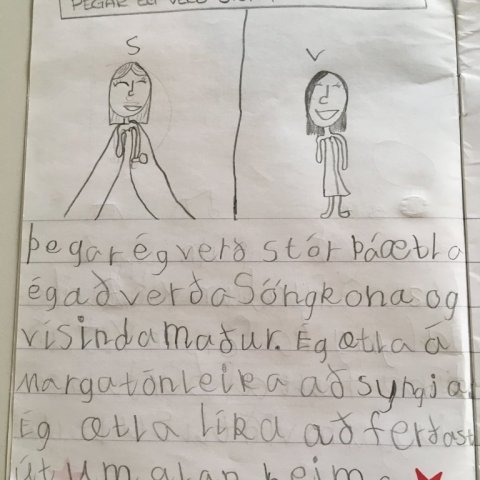 ÞEGAR ÉG VERÐ
S
V
Þegar ég verð stór þá ætla
ég að verða Söngkona og
vísindamaður. Ég ætla á
marga tónleika að syngja.
Ég ætla líka að ferðast
út um alan heim.